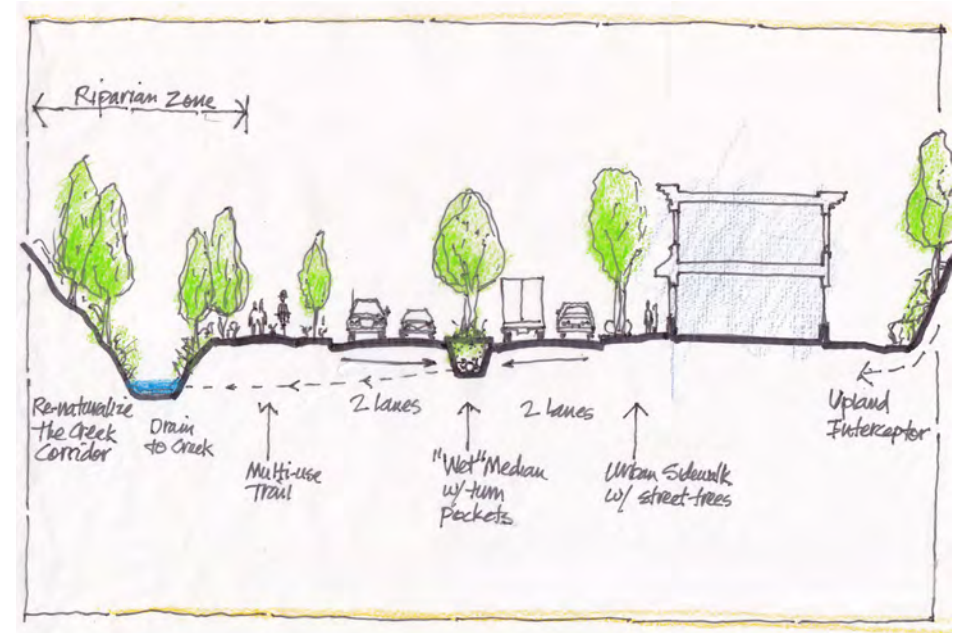 Riparian Zone
Re-naturalize
the Creek
Corridor
Drain
to Creek
Multi-use
Trail
2 Lanes
"Wet" Median
w/ turn
pockets
2 Lanes
Urban Sidewalk
w/ street trees
Upland
Interceptor